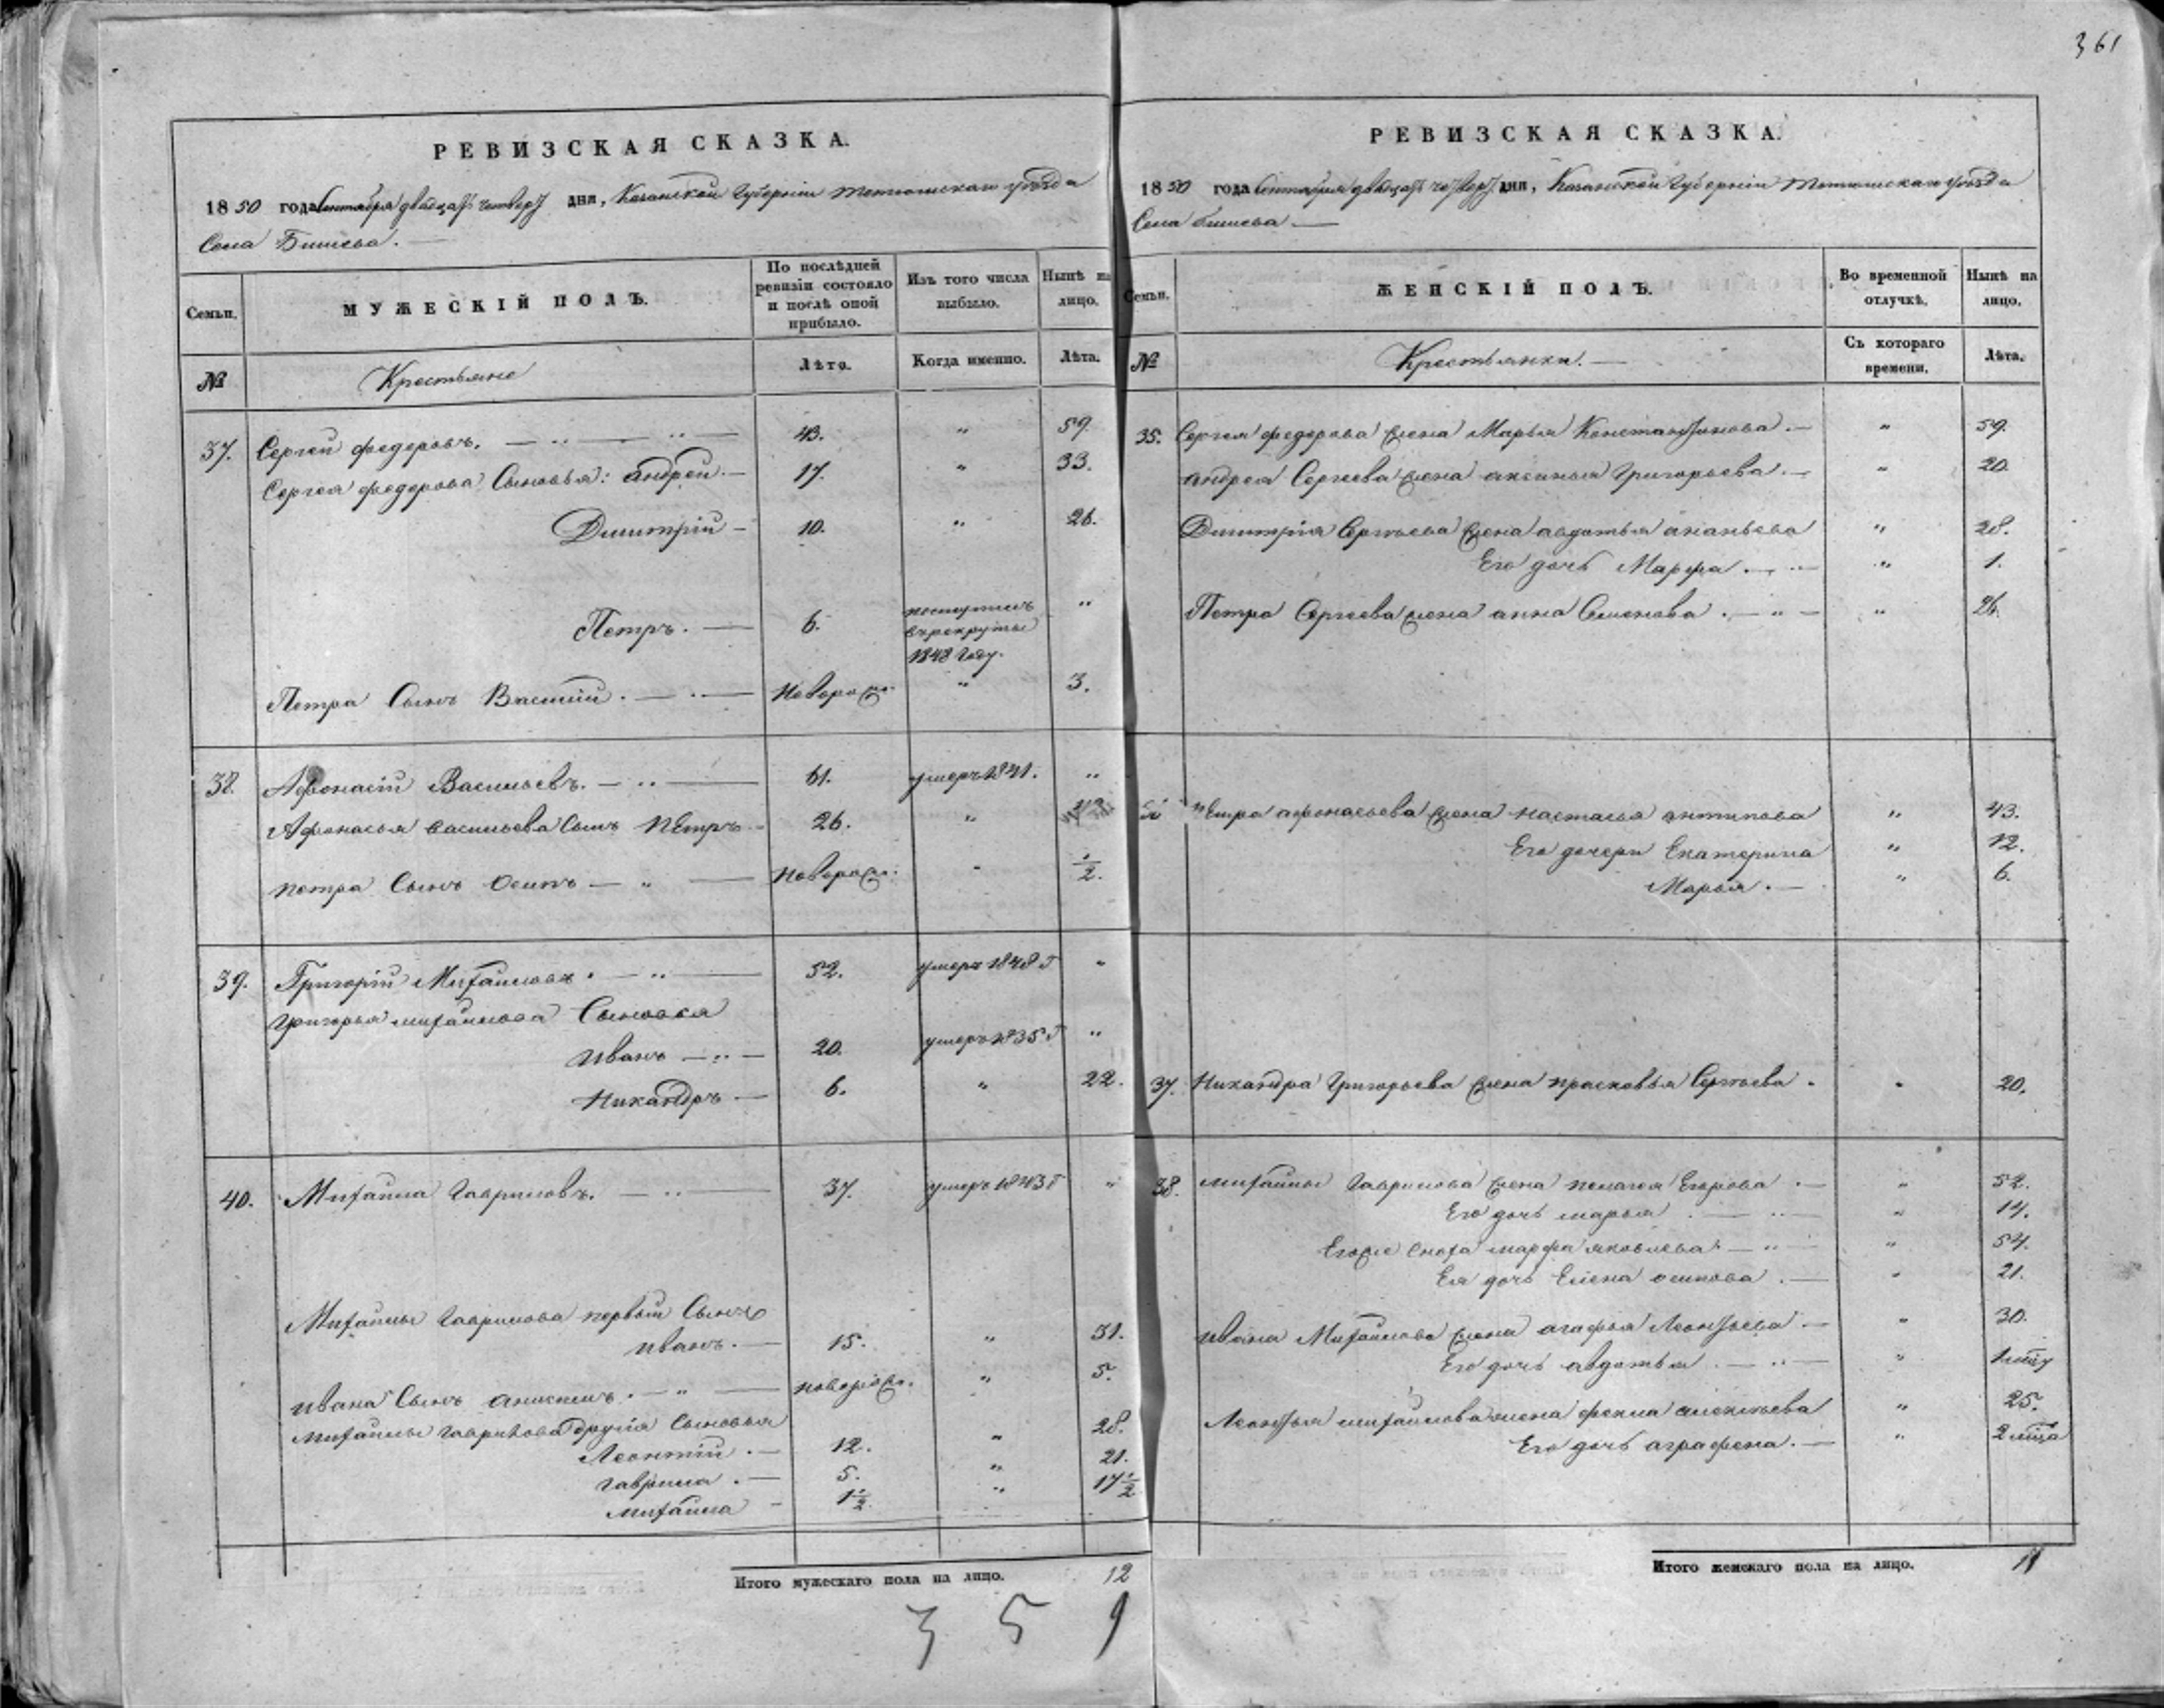 361
РЕВИЗСКАЯ СКАЗКА.
1850 года Сентября двадцать четверт дня, Казанской Губерніи Тетюшскаго уѣзда
Села Бишева.
Семьи.
МУЖЕСКІЙ ПОЛЪ.
По послѣдней ревизіи состояло и послѣ оной прибыло.
Изъ того числа выбыло.
Нынѣ на лицо.
№
Крестьяне
Лѣта.
Когда именно.
Лѣта.
37. Сергей федоровъ. 43. " 59.
Сергея федорова Сыновья: андрей. 17. " 33.
Димитрій 10. " 26.
Петръ. 6. поступилъ в рекруты 1848 году. "
Петра Сынъ Василій. Новорож. " 3.
38. Афонасій Васильевъ. 61. умеръ 1841. "
Афонасья васильева Сынъ Пётръ 26. "
петра Сынъ осипъ " Новорож. " 1/2.
39. Григорій Михайловъ. " 52. умеръ 1848 г "
григорья михайлова Сыновья
иванъ 20. умеръ 1835 г "
Никандръ 6. " 22.
40. Михайла Гавриловъ. 37. умеръ 1843 г "
Михайлы Гаврилова первый Сынъ
иванъ. 15. " 31.
ивана Сынъ аникинъ. " новорож. " 5.
михайлы гаврилова другія Сыновья
Леонтій. 12. " 28.
гаврила. 5. " 21.
михайла 1 1/2. " 17 1/2
Итого мужескаго пола на лицо. 12
359
РЕВИЗСКАЯ СКАЗКА.
1850 года Сентября двадцать четверт дня, Казанской Губерніи Тетюшскаго уѣзда
Села бишева
Семьи.
ЖЕНСКІЙ ПОЛЪ.
Во временной отлучкѣ.
Нынѣ на лицо.
№
Крестьянки.
Съ котораго времени.
Лѣта.
35. Сергея федорова жена Марья Константинова. " 59.
андрея Сергеева жена аксинья Григорьева. " 20.
Димитрія Сергѣева жена авдотья ананьева " 28.
Его дочь Марфа. " 1.
Петра Сергеева жена анна Семенова. " 26.
петра афонасьева жена настасья антипова " 43.
Его дочери Екатерина " 12.
Марья. " 6.
37. Никандра Григорьева жена прасковья Сергѣева. " 20.
38. михайлы Гаврилова жена пелагея Егорова. " 52.
Его дочь марья. " 14.
Егоже сноха марфа яковлева. " 54.
Ея дочь Елена осипова. " 21.
ивана Михайлова жена агафья Леонтьева. " 30.
Его дочь авдотья. " 1 мцу
Леонтья михайлова жена фекла алексѣева " 25.
Его дочь аграфена. " 2 мца
Итого женскаго пола на лицо. 17